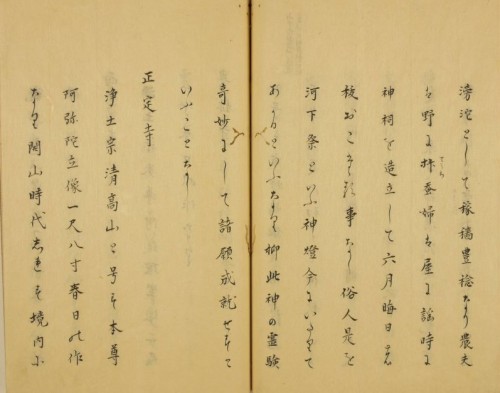 滂沱として稼穡豊稔なり農夫
は野に抃蚕婦は屋に謡時に
神祠を造立して六月晦日
おこたる事なし俗人是を
河下祭といふ神燈今にいたりて
ありといふなり抑此神の霊験
奇妙にして諸願成就せずと
いふことなし
正定寺
浄土宗清高山と号す本尊
阿弥陀立像一尺八寸春日の作
なり開山時代志れず境内に